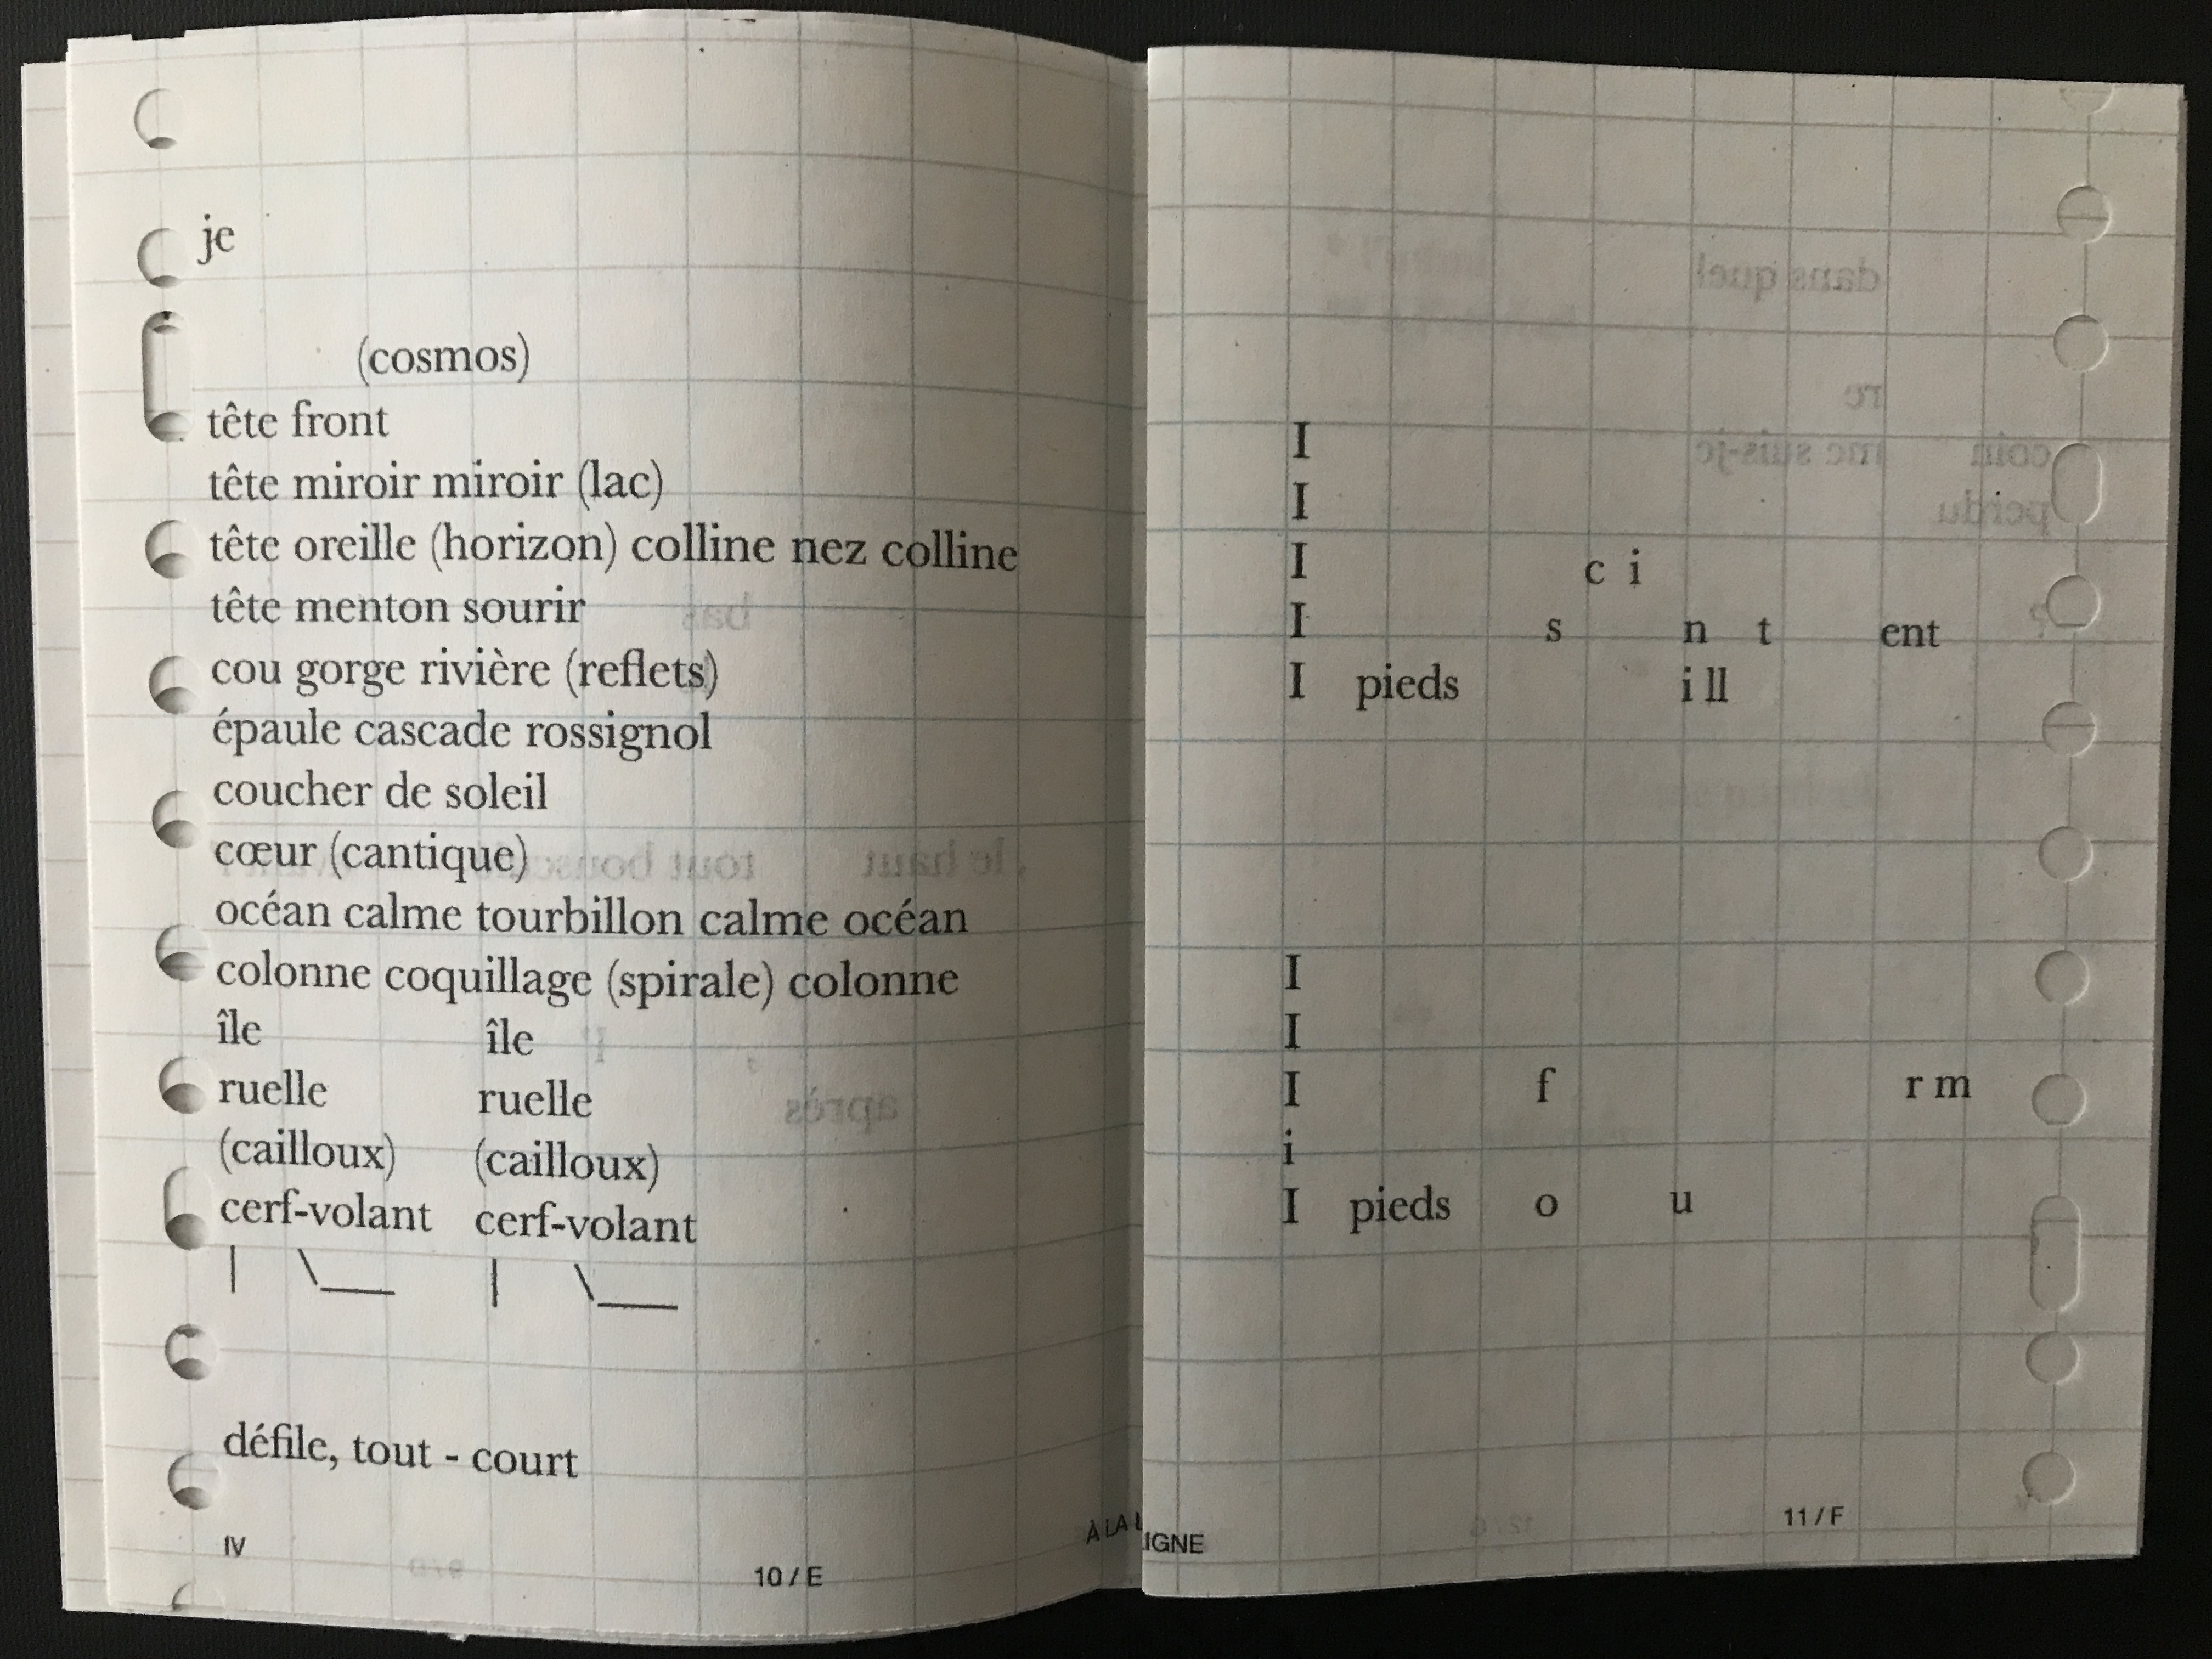 je
(cosmos)
tête front
tête miroir miroir (lac)
tête oreille (horizon) colline nez colline
tête menton sourir
cou gorge rivière (reflets)
épaule cascade rossignol
coucher de soleil
cœur (cantique)
océan calme tourbillon calme océan
colonne coquillage (spirale) colonne
île île
ruelle ruelle
(cailloux) (cailloux)
cerf-volant cerf-volant
| \__ | \__
défile, tout - court
IV
10 / E
À LA LIGNE
I
I
I c i
I s n t ent
I pieds i ll
I
I
I f r m
i
I pieds o u
11 / F
dans quel
re
coin me suis-je
perdu
?
bas
le haut tout
après